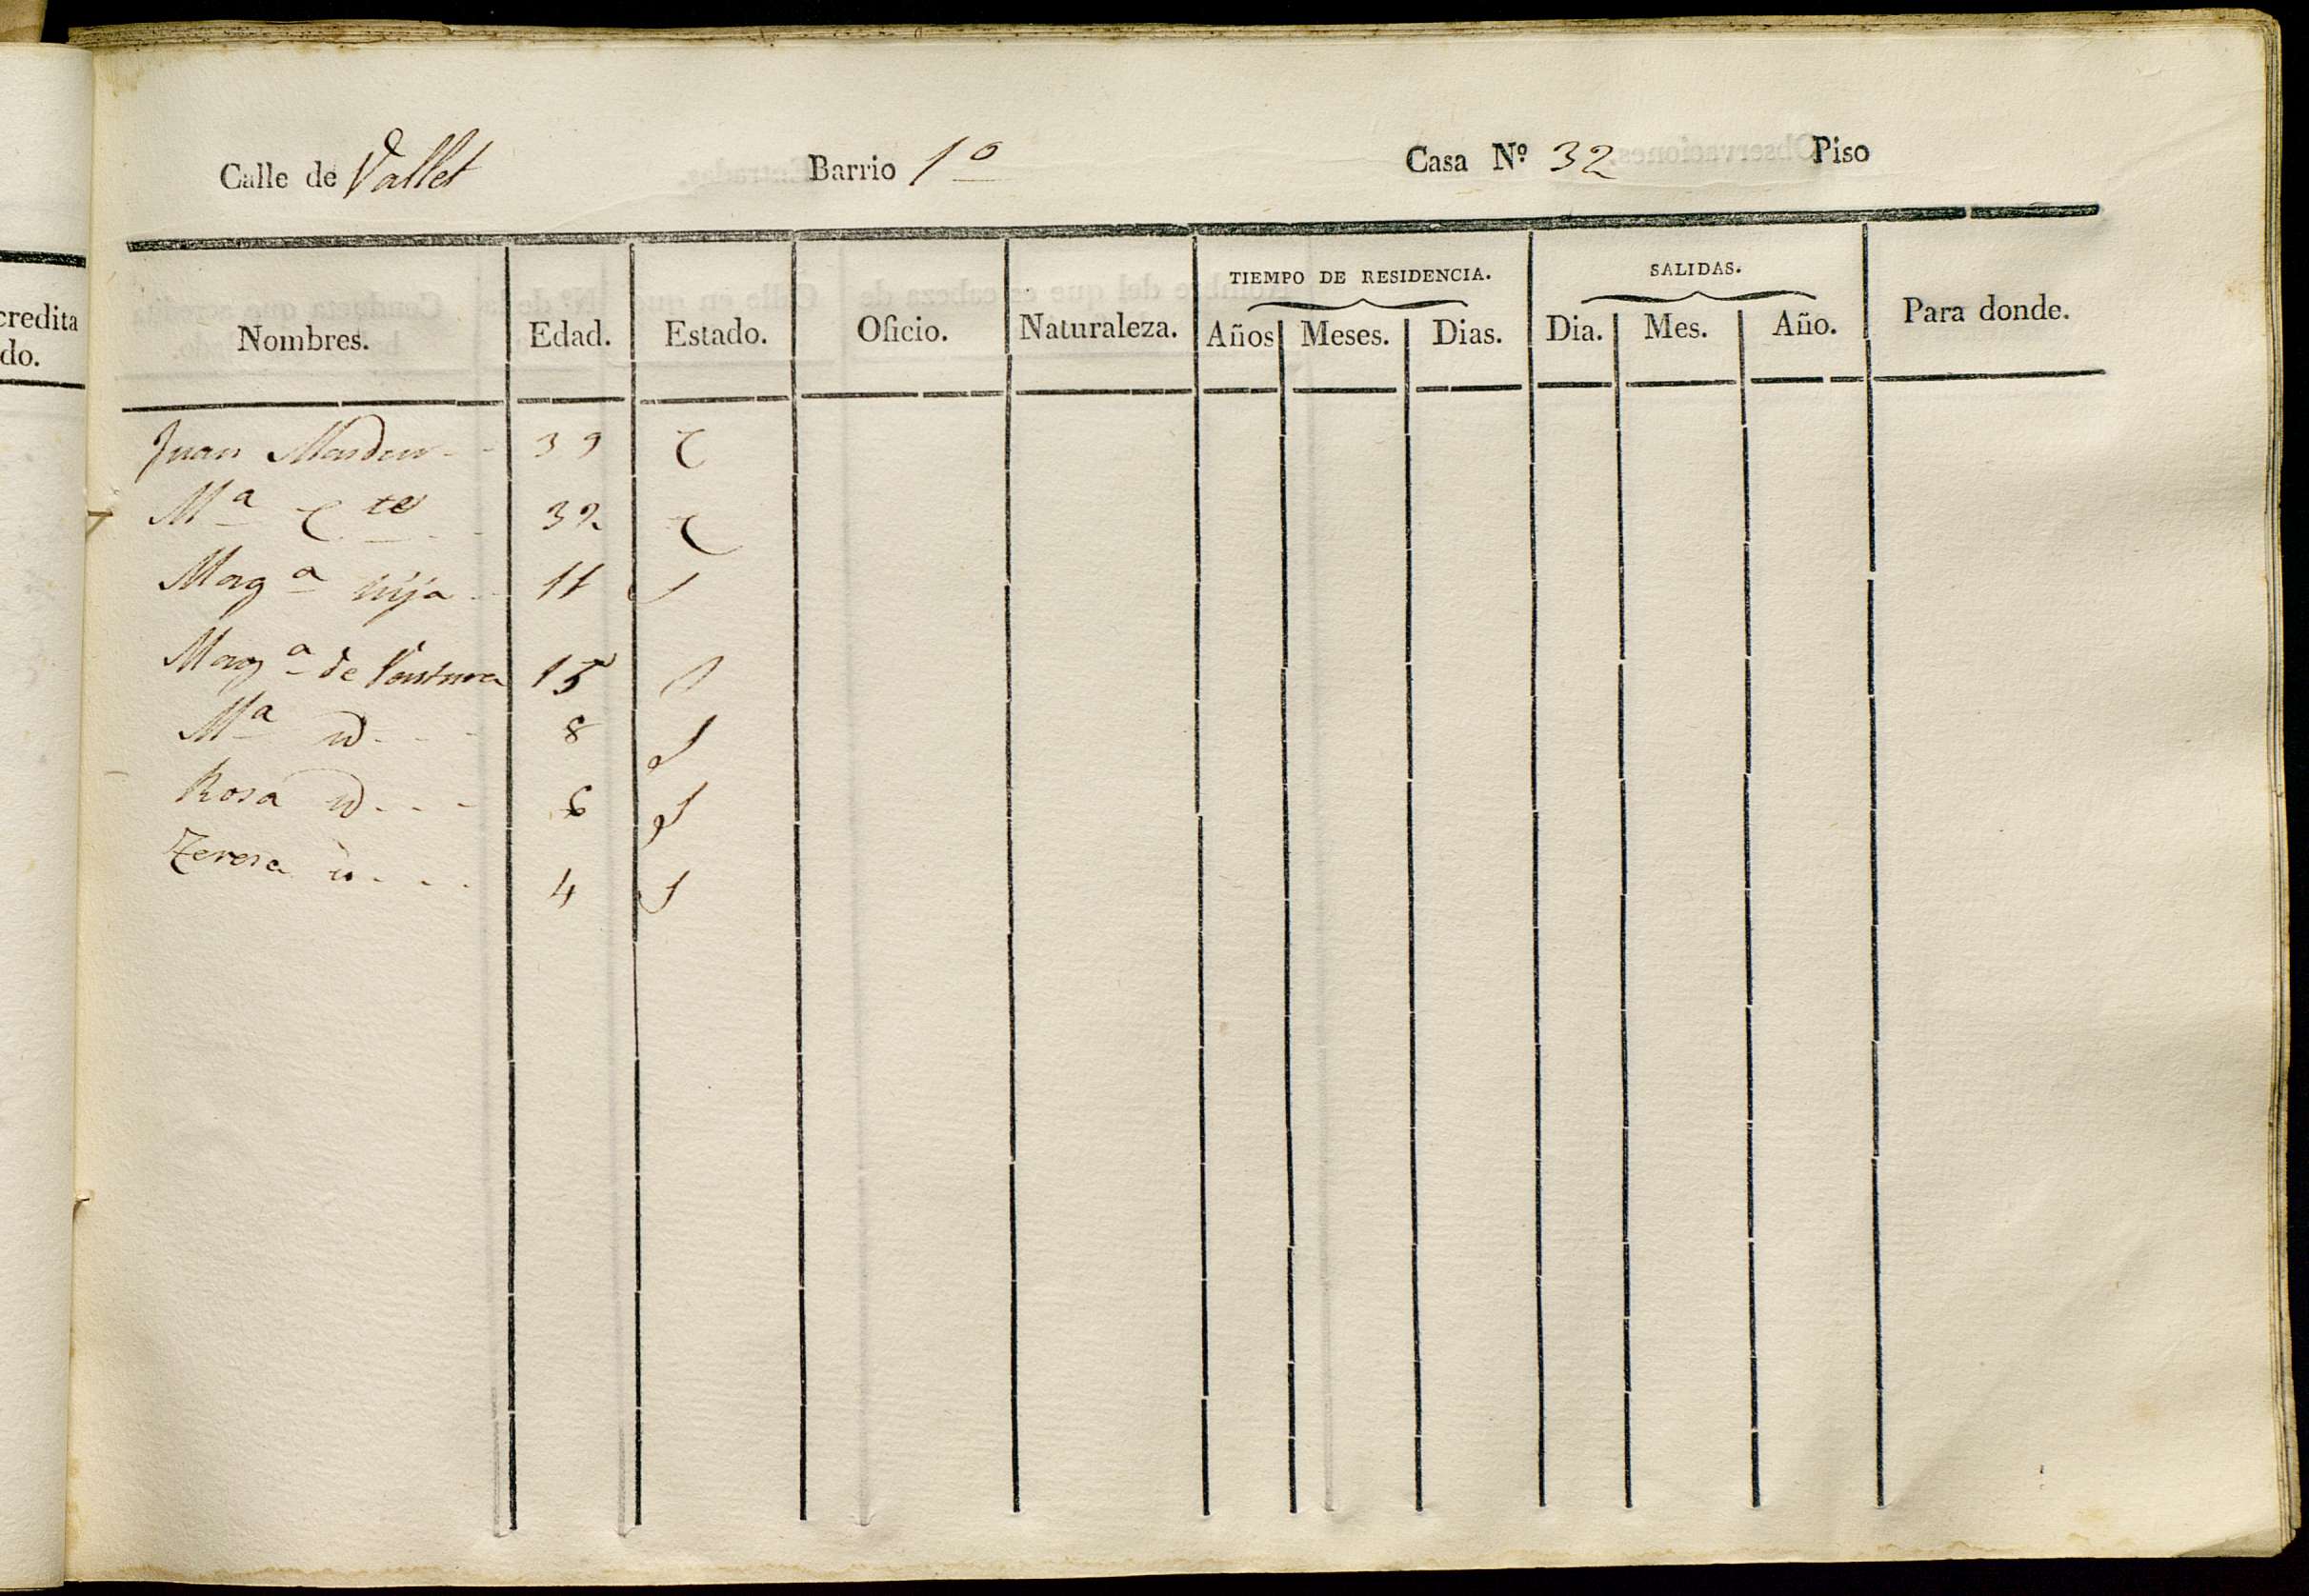 Calle de Vallet Barrio 1º Casa Nº 32 Piso
TIEMPO DE RESIDENCIA. SALIDAS.
credita
do.
Nombres. Edad. Estado. Oficio. Naturaleza. Años Meses. Dias. Dia. Mes. Año. Para donde.
Juan 39 C
Mª C.te 32 C
Magª hija 11 S
Magª de Ventura 15 S
Mª id 8 S
Rosa id 6 S
Teresa id 4 S